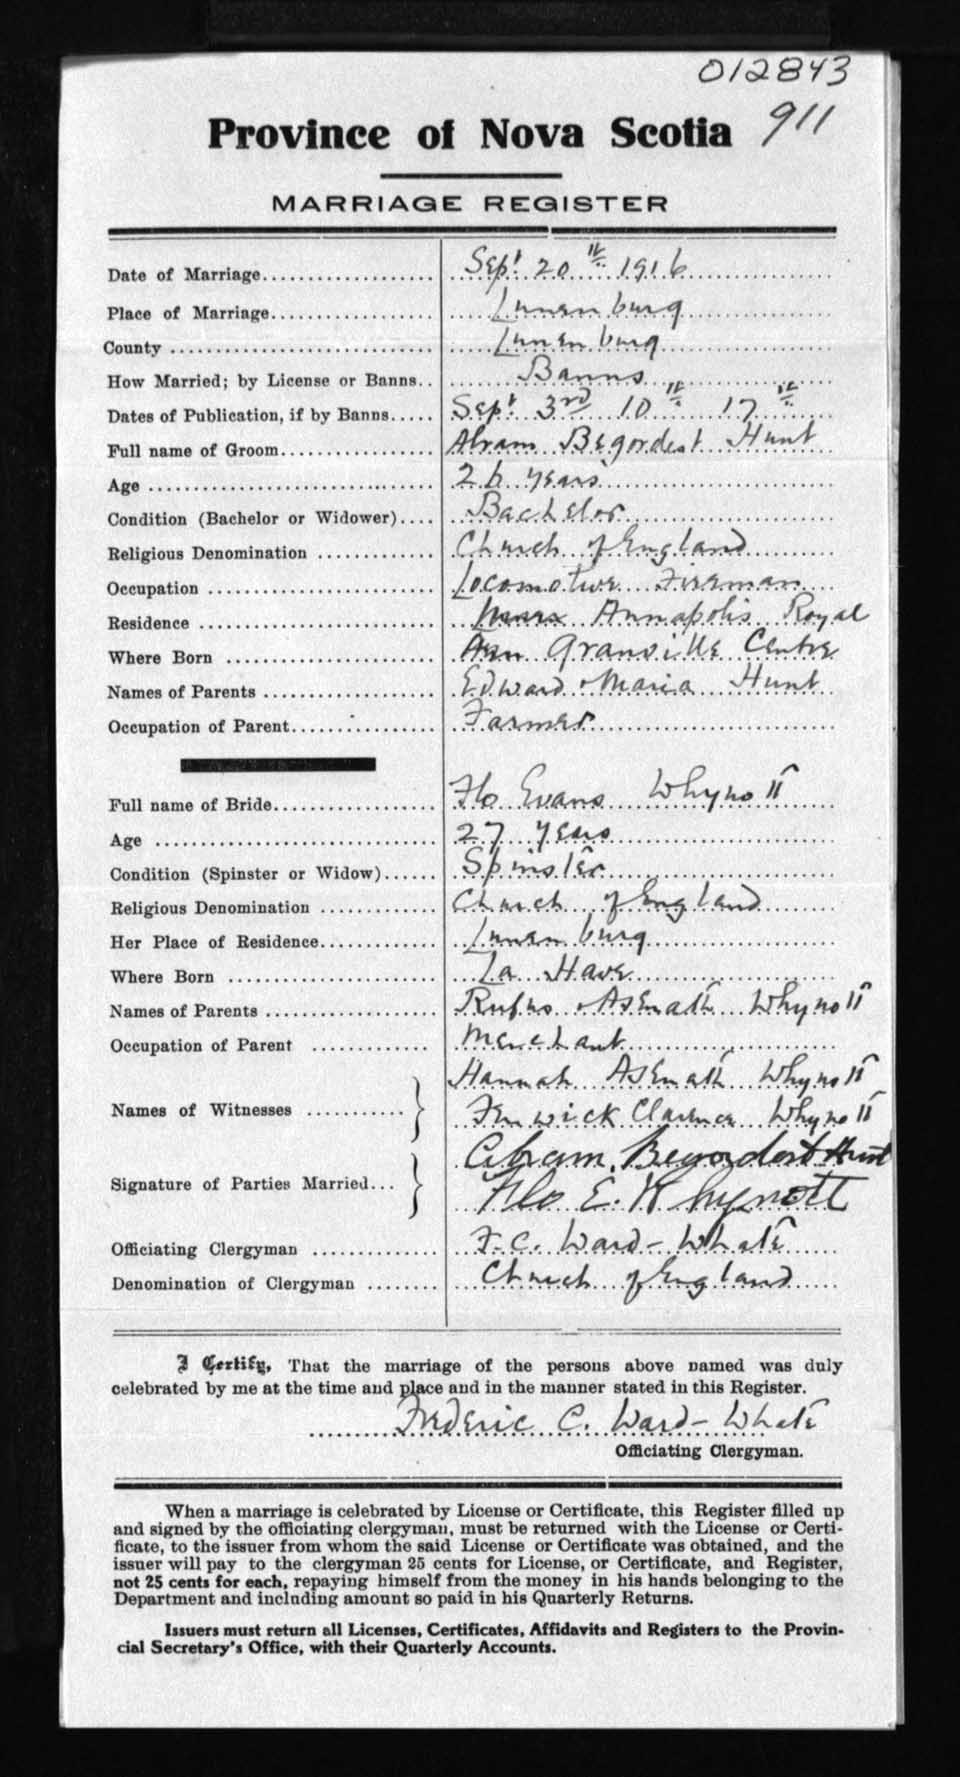 012843
911
Province of Nova Scotia
MARRIAGE REGISTER
Date of Marriage Sept 20th 1916
Place of Marriage Lunenburg
County Lunenburg
How Married; by License or Banns Banns
Dates of Publication, if by Banns Sept 3rd 10th 17th
Full name of Groom Abram Begordest Hunt
Age 26 years
Condition (Bachelor or Widower) Bachelor
Religious Denomination Church of England
Occupation Locomotive Fireman
Residence Annapolis Royal
Where Born Granville Centre
Names of Parents Edward & Maria Hunt
Occupation of Parent Farmer
Full name of Bride Flo Evans Whynott
Age 27 years
Condition (Spinster or Widow) Spinster
Religious Denomination Church of England
Her Place of Residence Lunenburg
Where Born La Have
Names of Parents Rufus & Asenath Whynott
Occupation of Parent Merchant
Names of Witnesses Hannah Asenath Whynott
Fenwick Clarence Whynott
Signature of Parties Married Abram Begordest Hunt
Flo E. Whynott
Officiating Clergyman F. C. Ward-Whate
Denomination of Clergyman Church of England
I Certify, That the marriage of the persons above named was duly
celebrated by me at the time and place and in the manner stated in this Register.
Frederic C. Ward-Whate
Officiating Clergyman.
When a marriage is celebrated by License or Certificate, this Register filled up
and signed by the officiating clergyman, must be returned with the License or Certi-
ficate, to the issuer from whom the said License or Certificate was obtained, and the
issuer will pay to the clergyman 25 cents for License, or Certificate, and Register,
not 25 cents for each, repaying himself from the money in his hands belonging to the
Department and including amount so paid in his Quarterly Returns.
Issuers must return all Licenses, Certificates, Affidavits and Registers to the Provin-
cial Secretary's Office, with their Quarterly Accounts.